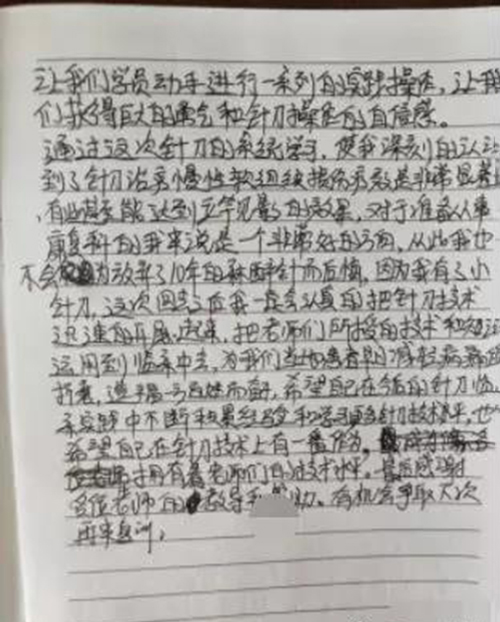 让我们学员动手进行一系列的实践操作，让我
们获得巨大的勇气和针刀操作的自信感。
通过这次针刀的系统学习，使我深刻的认识
到了针刀治疗慢性软组织损伤疗效是非常显著
，有些甚至能达到立竿见影的效果，对于准备从事
康复科的我来说是一个非常好的方向，从此我也
不会因为放弃了10年的麻醉针而后悔，因为我有了小
针刀，这次回去之后我一定会认真的把针刀技术
迅速的开展起来，把老师们所授的技术和知识
运用到临床中去，为我们当地患者朋减轻病痛的
折磨，造福一方百姓而奋，希望自己在今后的针刀临
床实践中不断积累经验和学习更多针刀技术水平，也
希望自己在针刀技术上有一番作为，
拥有着老师们的技术水平。最后感谢
各位老师的教导和帮助。有机会争取下次
再来复训；